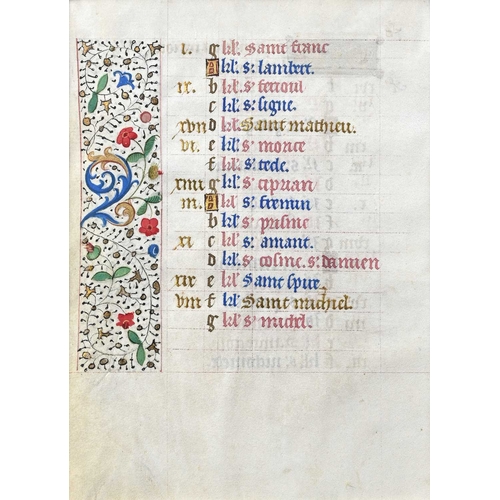 i. g kl'. Saint franc
A kl'. s'. lambert.
ix. b kl'. s' ferroul
c kl'. s'. signe.
xvii d kl'. Saint mathieu.
vi. e kl'. s' morice
f kl'. s' tecle.
xiiii g kl'. s' ciprian
iii. A kl'. s'. fremin
b kl'. s' prisme
xi c kl'. s'. amant.
d kl'. s' cosme. s'. damien
xix e kl'. Saint spire.
viii f kl'. Saint michiel.
g kl'. s'